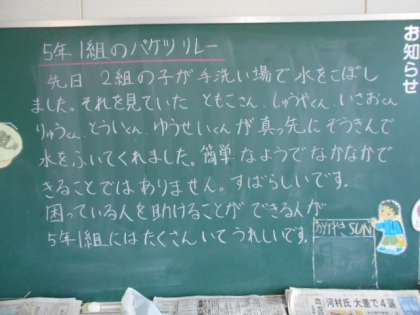 5年1組のバケツリレー
先日 2組の子が手洗い場で水をこぼし
ました。それを見ていた ともこさん、しゅうやくん、いさおくん
りゅうくん、とういくん、ゆうせいくんが真っ先にぞうきんで
水をふいてくれました。簡単なようでなかなかで
きることではありません。すばらしいです。
困っている人を助けることができる人が
5年1組にはたくさんいてうれしいです。
お知らせ
SUN
河村氏 大差で4選